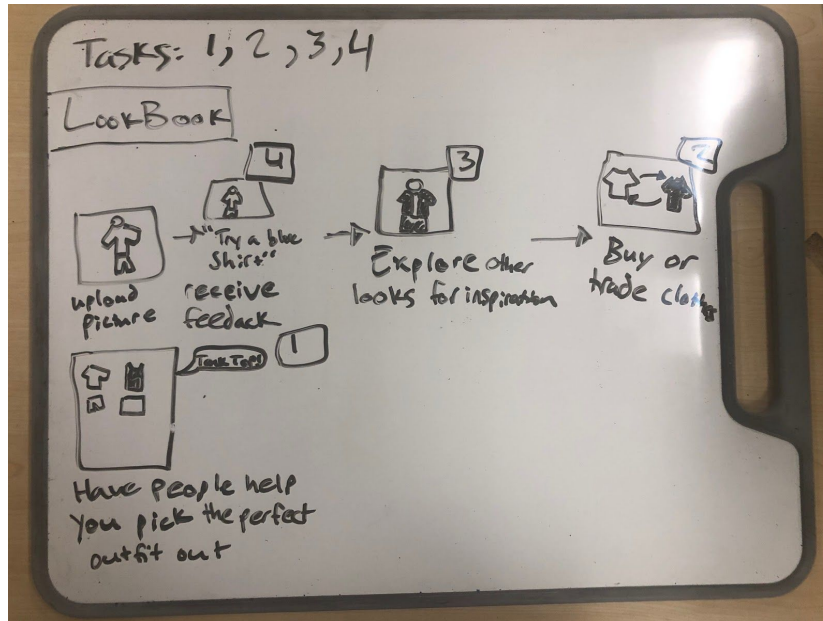 Tasks: 1, 2, 3, 4
LookBook
4
"Try a blue
Shirt"
upload
picture
receive
feedack
3
Explore other
looks for inspiration
2
Buy or
trade clothes
Tank Tops
1
Have people help
you pick the perfect
outfit out